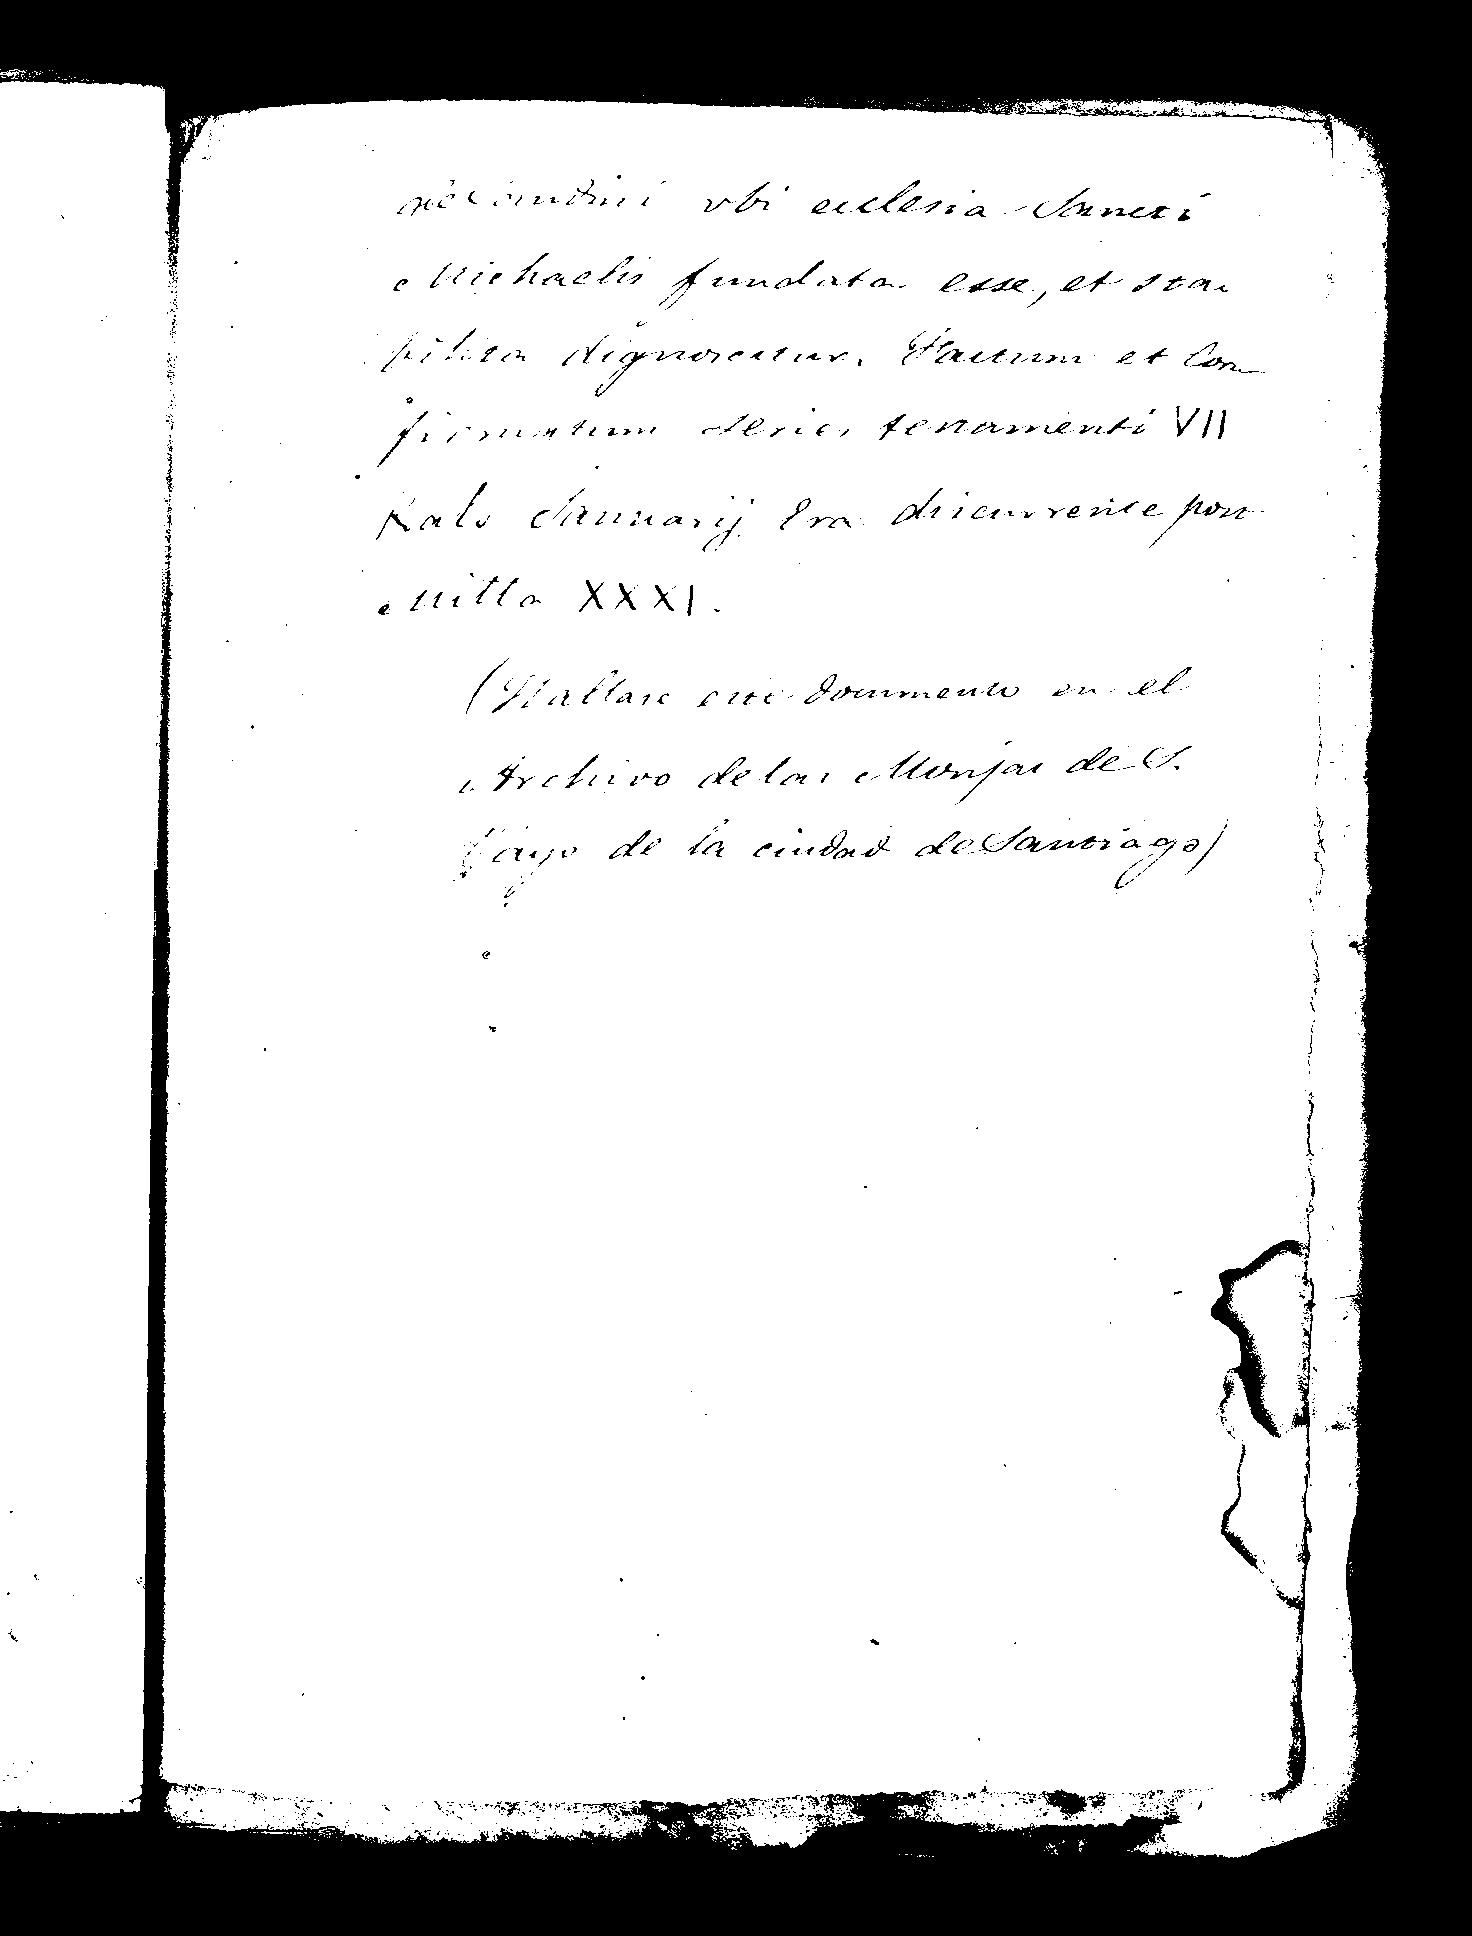 ubi ecclesia Sancti
Michaelis fundata esse, et sta-
bilita dignoscitur. Factum et Con-
firmatum series testamenti VII
Kals Januarij Era discurrente post
Milla XXXI.
(Hallase este documento en el
Archivo de las Monjas de S.
Payo de la ciudad de Santiago)